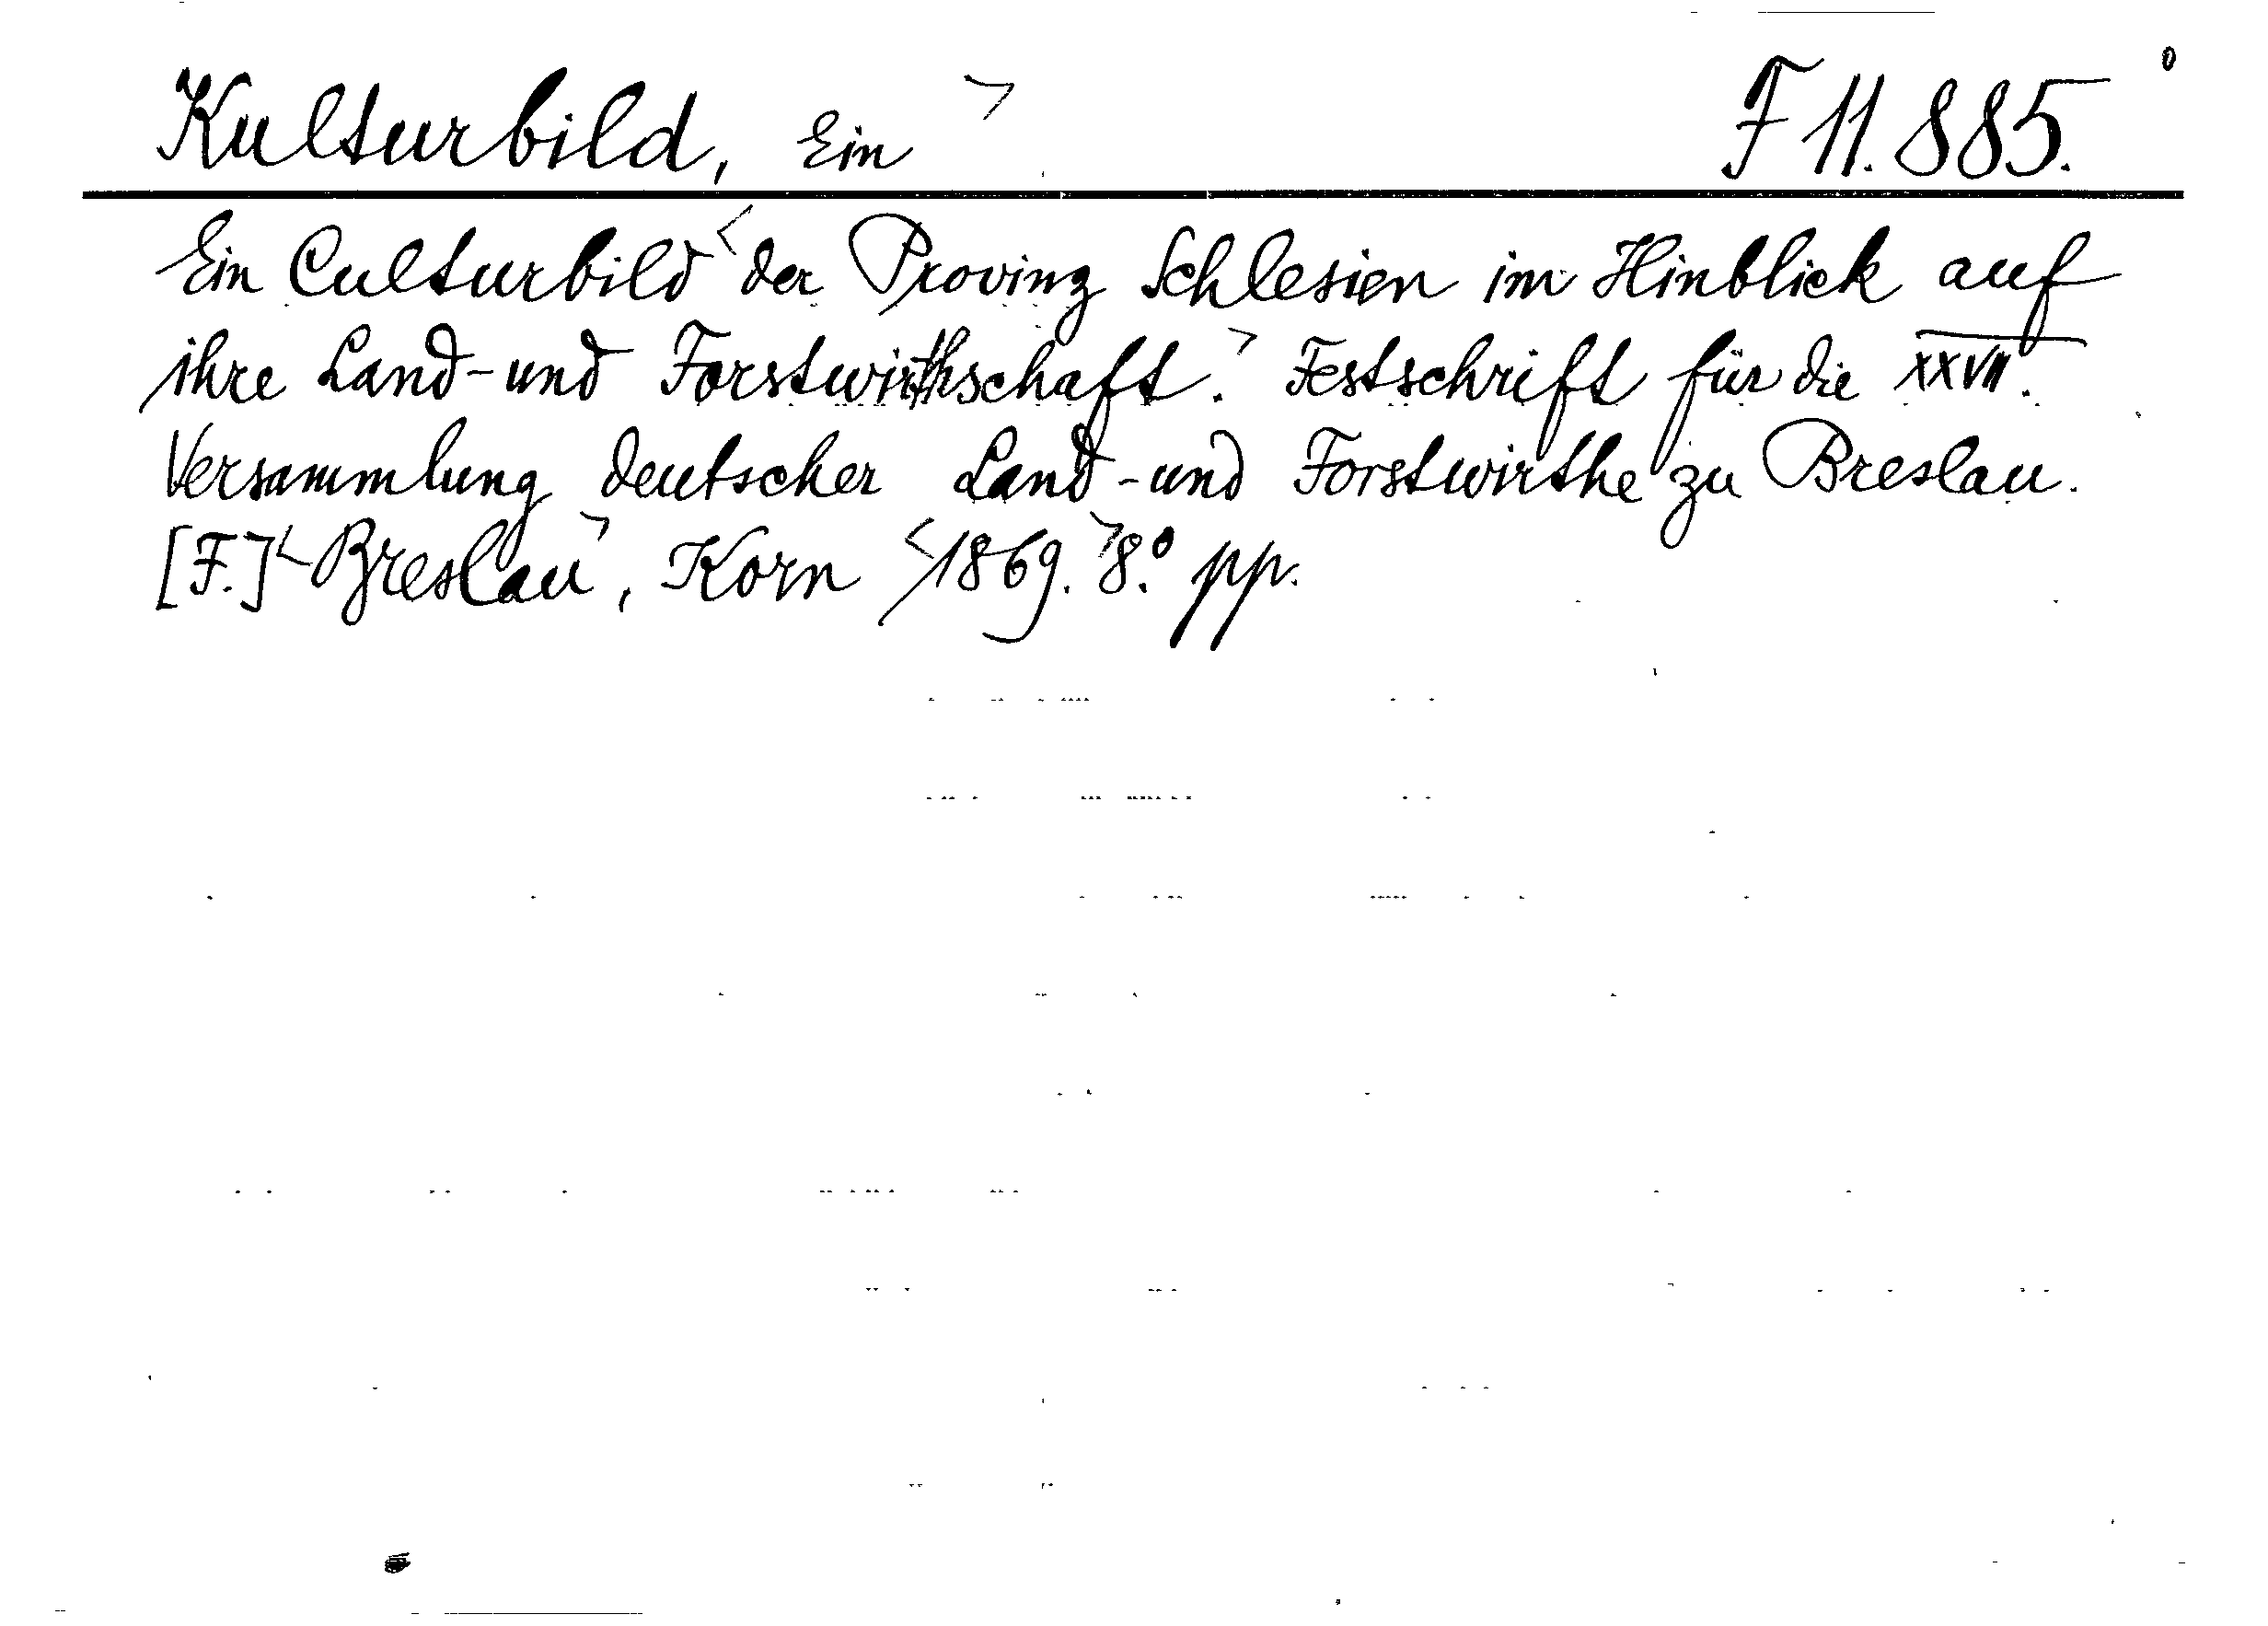 Kulturbild, Ein F 11.885.
Ein Culturbild der Provinz Schlesien im Hinblick auf
ihre Land- und Forstwirthschaft. Festschrift für die XXVII.
Versammlung deutscher Land- und Forstwirthe zu Breslau.
[F.] Breslau, Korn 1869. 8.° pp.